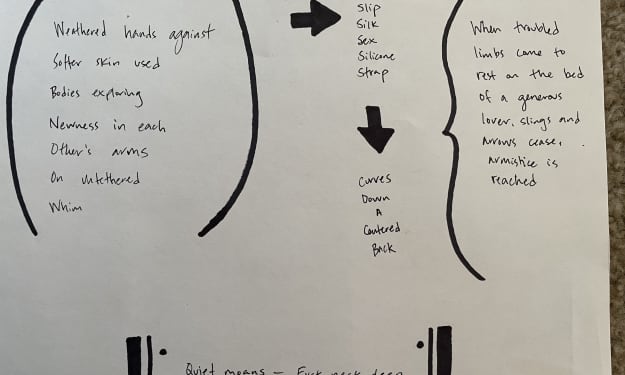 Weathered hands against
Softer skin used
Bodies exploring
Newness in each
Other's arms
On untethered
Whim
Slip
Silk
Sex
Silicone
Strap
Curves
Down
A
Contered
Back
When troubled
limbs come to
rest on the bed
of a generous
lover, slings and
arrows cease,
armistice is
reached
Quiet moans –